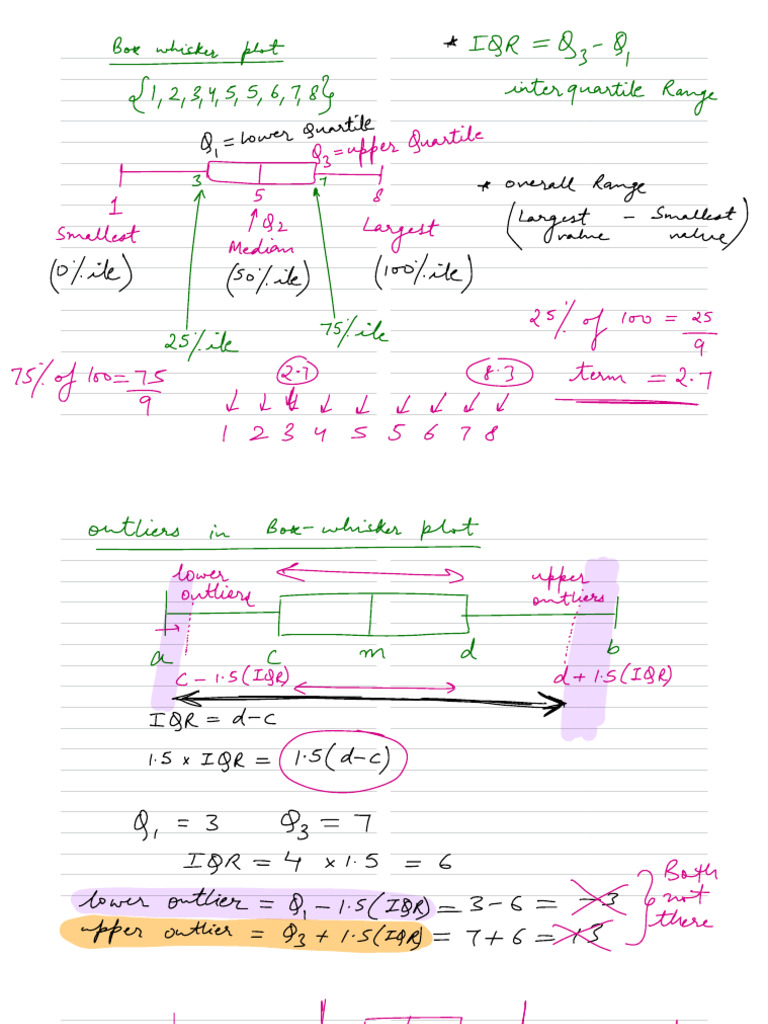 Box whisker plot
* IQR = Q3 - Q1
{1, 2, 3, 4, 5, 5, 6, 7, 8}
interquartile Range
Q1 = lower Quartile
Q3 = upper Quartile
3 7
1 5 8
* overall Range
Smallest Q2 Largest
Median
(Largest value - Smallest value)
(0%ile) (50%ile) (100%ile)
25%ile 75%ile
25% of 100 = 25/9
75% of 100 = 75/9
2.7 8.3 term = 2.7
1 2 3 4 5 5 6 7 8
outliers in Box-whisker plot
lower outliers upper outliers
a c m d b
c - 1.5(IQR) d + 1.5(IQR)
IQR = d-c
1.5 x IQR = 1.5(d-c)
Q1 = 3 Q3 = 7
IQR = 4 x 1.5 = 6
lower outlier = Q1 - 1.5(IQR) = 3-6 = -3
upper outlier = Q3 + 1.5(IQR) = 7+6 = 13
Both not there